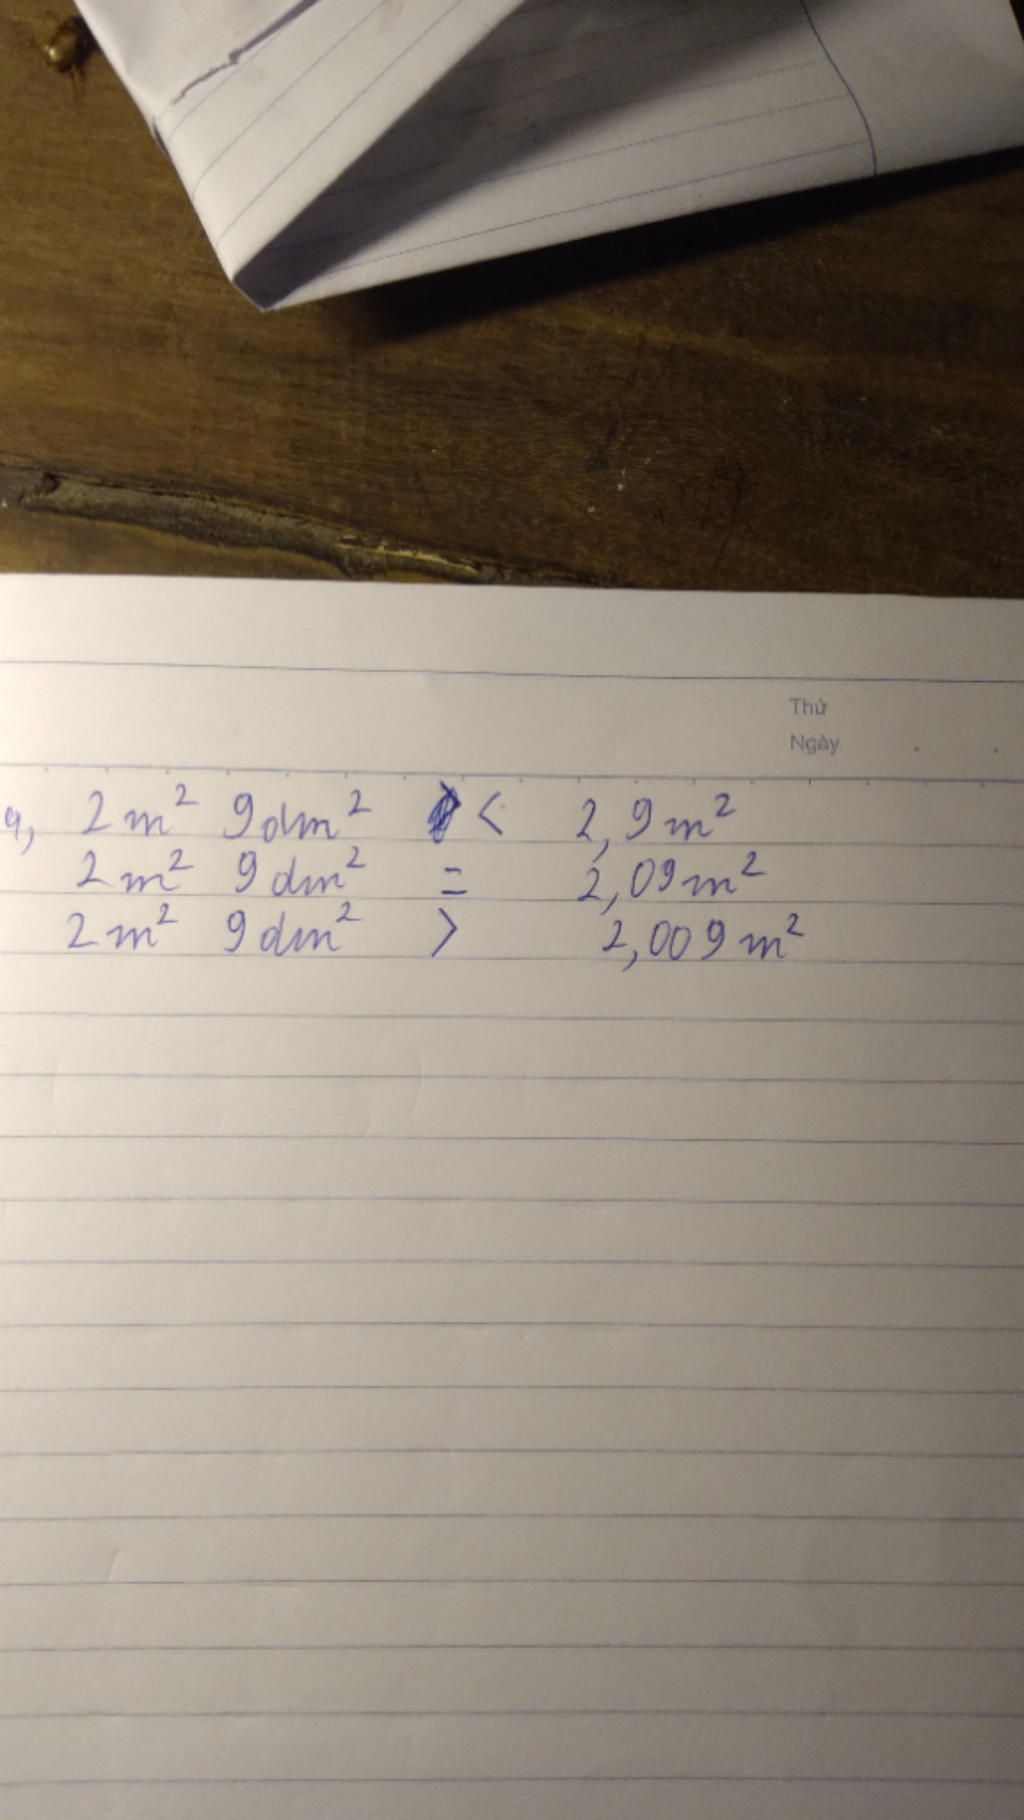 Thứ
Ngày
a, 2m² 9dm² < 2,9m²
2m² 9dm² = 2,09m²
2m² 9dm² > 2,009m²